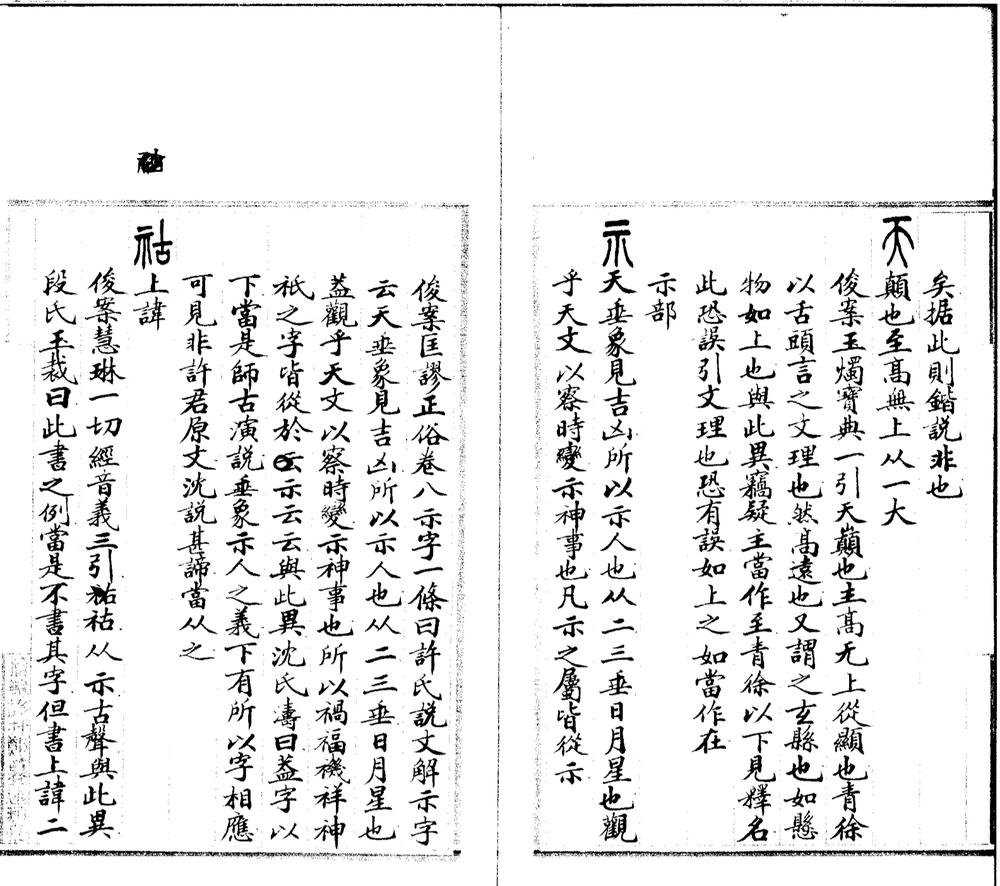 矣据此則鍇説非也
天 顛也至高無上从一大
俊案玉燭寶典一引天巓也主高无上從顯也青徐
以舌頭言之文理也然高遠也又謂之玄縣也如懸
物如上也與此異竊疑主當作至青徐以下見釋名
此恐誤引文理也恐有誤如上之如當作在
示部
示 天垂象見吉凶所以示人也从二三垂日月星也觀
乎天文以察時變示神事也凡示之屬皆從示
俊案匡謬正俗卷八示字一條曰許氏説文解示字
云天垂象見吉凶所以示人也从二三垂日月星也
盖觀乎天文以察時變示神事也所以禍福禨祥神
祇之字皆從於示云云與此異沈氏濤曰盖字以
下當是師古演説垂象示人之義下有所以字相應
可見非許君原文沈説甚諦當从之
祜 上諱
俊案慧琳一切經音義三引祜从示古聲與此異
段氏玉裁曰此書之例當是不書其字但書上諱二